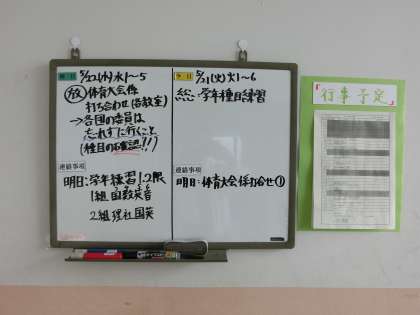 明日 5/22(水)水1~5
(放)体育大会係
打ち合わせ(各教室)
→各団の委員は
忘れずに行くこと
(種目の確認!!)
連絡事項
明日:学年練習1.2限
1組 国数英音
2組 理社国英
今日 5/21(火)火1~6
総:学年種目練習
連絡事項
明日:体育大会係打合せ①
「行事予定」